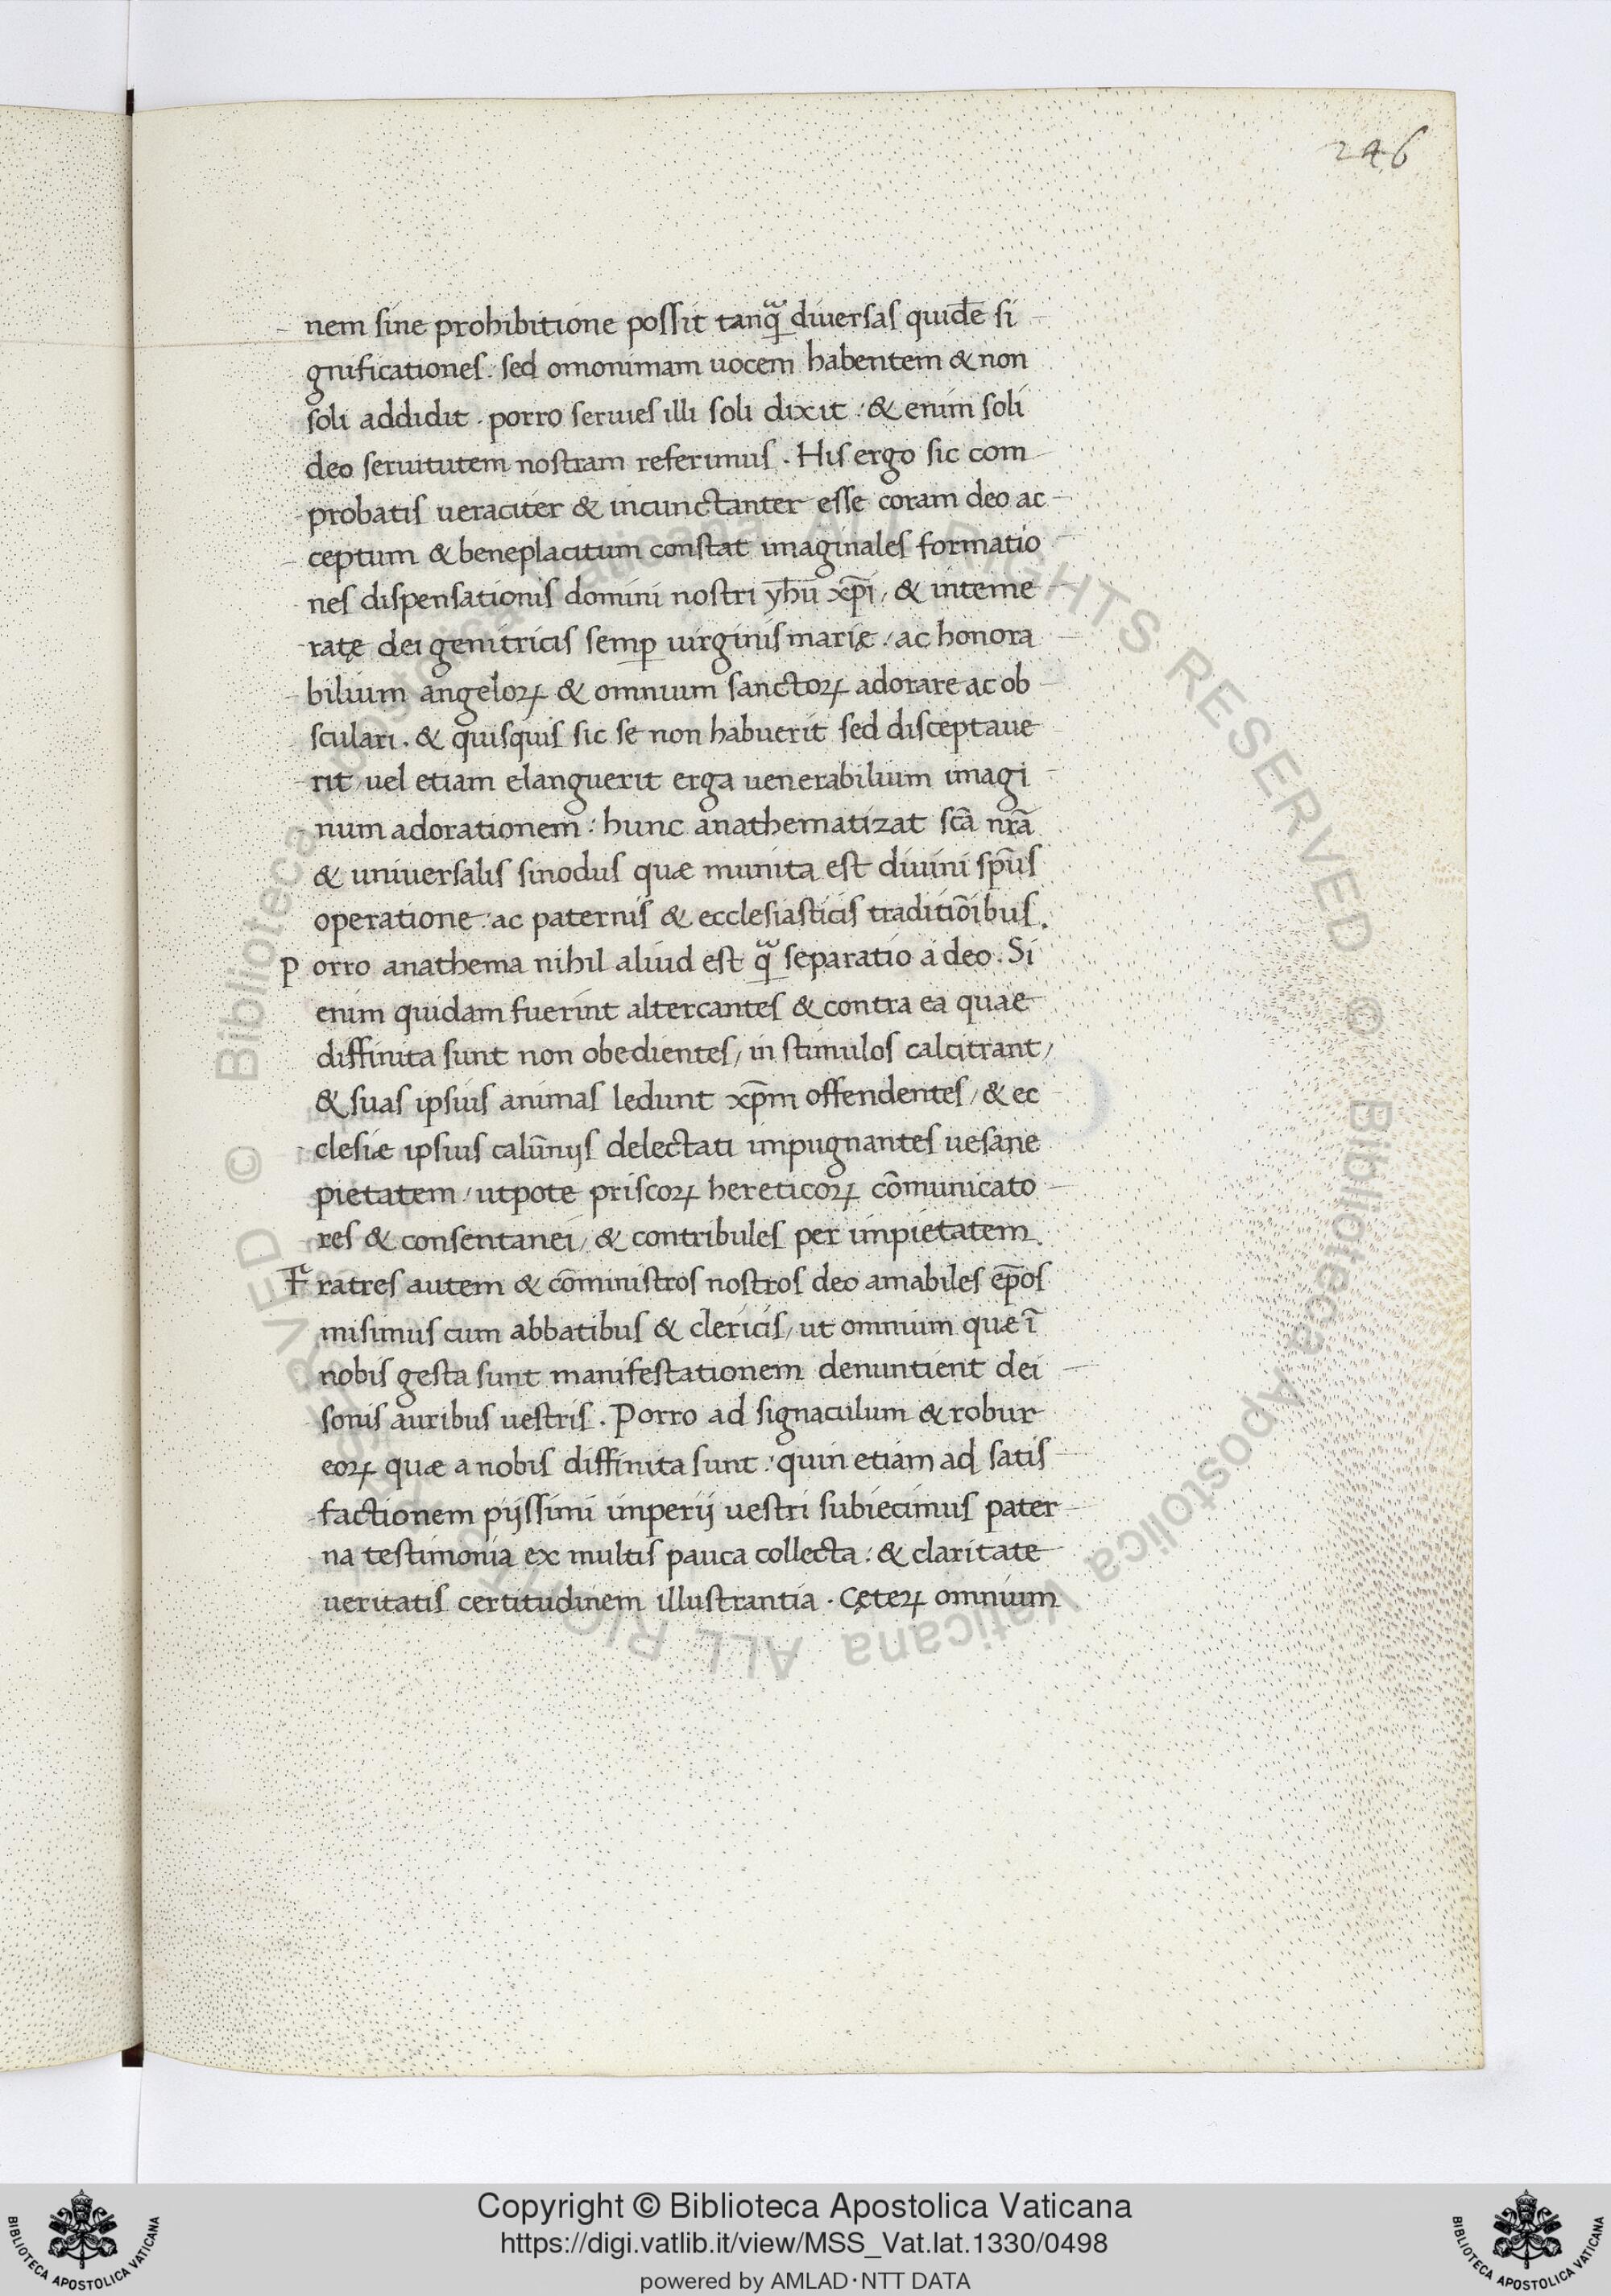 246
nem sine prohibitione possit tanqᷓ diuersas quidē si
gnificationes: sed omonimam uocem habentem & non
soli addidit. porro seruies illi soli dixit: & enim soli
deo seruitutem nostram referimus. His ergo sic com
probatis ueraciter & incunctanter esse coram deo ac
ceptum & beneplacitum constat imaginales formatio
nes dispensationis domini nostri yhū xp̄i, & inteme
ratę dei genitricis semꝑ uirginis marię: ac honora
bilium angeloꝝ & omnium sanctoꝝ adorare ac ob
sculari. & quisquis sic se non habuerit sed disceptaue
rit uel etiam elanguerit erga uenerabilium imagi
num adorationem: hunc anathematizat scā nrā
& uniuersalis sinodus quæ munita est diuini sp̄us
operatione: ac paternis & ecclesiasticis traditiōibus.
Porro anathema nihil aliud est qᷓ separatio a deo. Si
enim quidam fuerint altercantes & contra ea quae
diffinita sunt non obedientes, in stimulos calcitrant,
& suas ipsius animas ledunt xp̄m offendentes, & ec
clesiæ ipsius calūnijs delectati impugnantes uesane
pietatem, utpote priscoꝝ hereticoꝝ cōmunicato
res & consentanei, & contribules per impietatem.
Fratres autem & cōministros nostros deo amabiles ep̄os
misimus cum abbatibus & clericis, ut omnium quæ ī
nobis gesta sunt manifestationem denuntient dei
sonis auribus uestris. Porro ad signaculum & robur
eoꝝ quæ a nobis diffinita sunt: quin etiam ad satis
factionem pijssimi imperij uestri subiecimus pater
na testimonia ex multis pauca collecta: & claritate
ueritatis certitudinem illustrantia. Cęteꝝ omnium
© Biblioteca Apostolica Vaticana ALL RIGHTS RESERVED © Biblioteca Apostolica Vaticana ALL RIGHTS RESERVED
Copyright © Biblioteca Apostolica Vaticana
https://digi.vatlib.it/view/MSS_Vat.lat.1330/0498
powered by AMLAD・NTT DATA
BIBLIOTECA APOSTOLICA VATICANA
BIBLIOTECA APOSTOLICA VATICANA